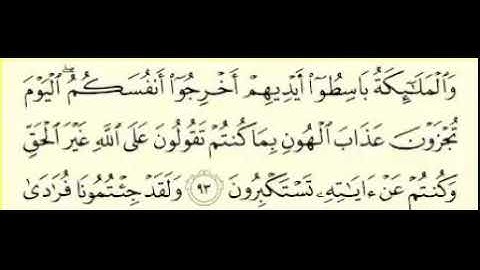 وَٱلۡمَلَـٰٓئِكَةُ بَاسِطُوٓاْ أَيۡدِيهِمۡ أَخۡرِجُوٓاْ أَنفُسَكُمُۖ ٱلۡيَوۡمَ
تُجۡزَوۡنَ عَذَابَ ٱلۡهُونِ بِمَا كُنتُمۡ تَقُولُونَ عَلَى ٱللَّهِ غَيۡرَ ٱلۡحَقِّ
وَكُنتُمۡ عَنۡ ءَايَـٰتِهِۦ تَسۡتَكۡبِرُونَ ٩٣ وَلَقَدۡ جِئۡتُمُونَا فُرَٰدَىٰ